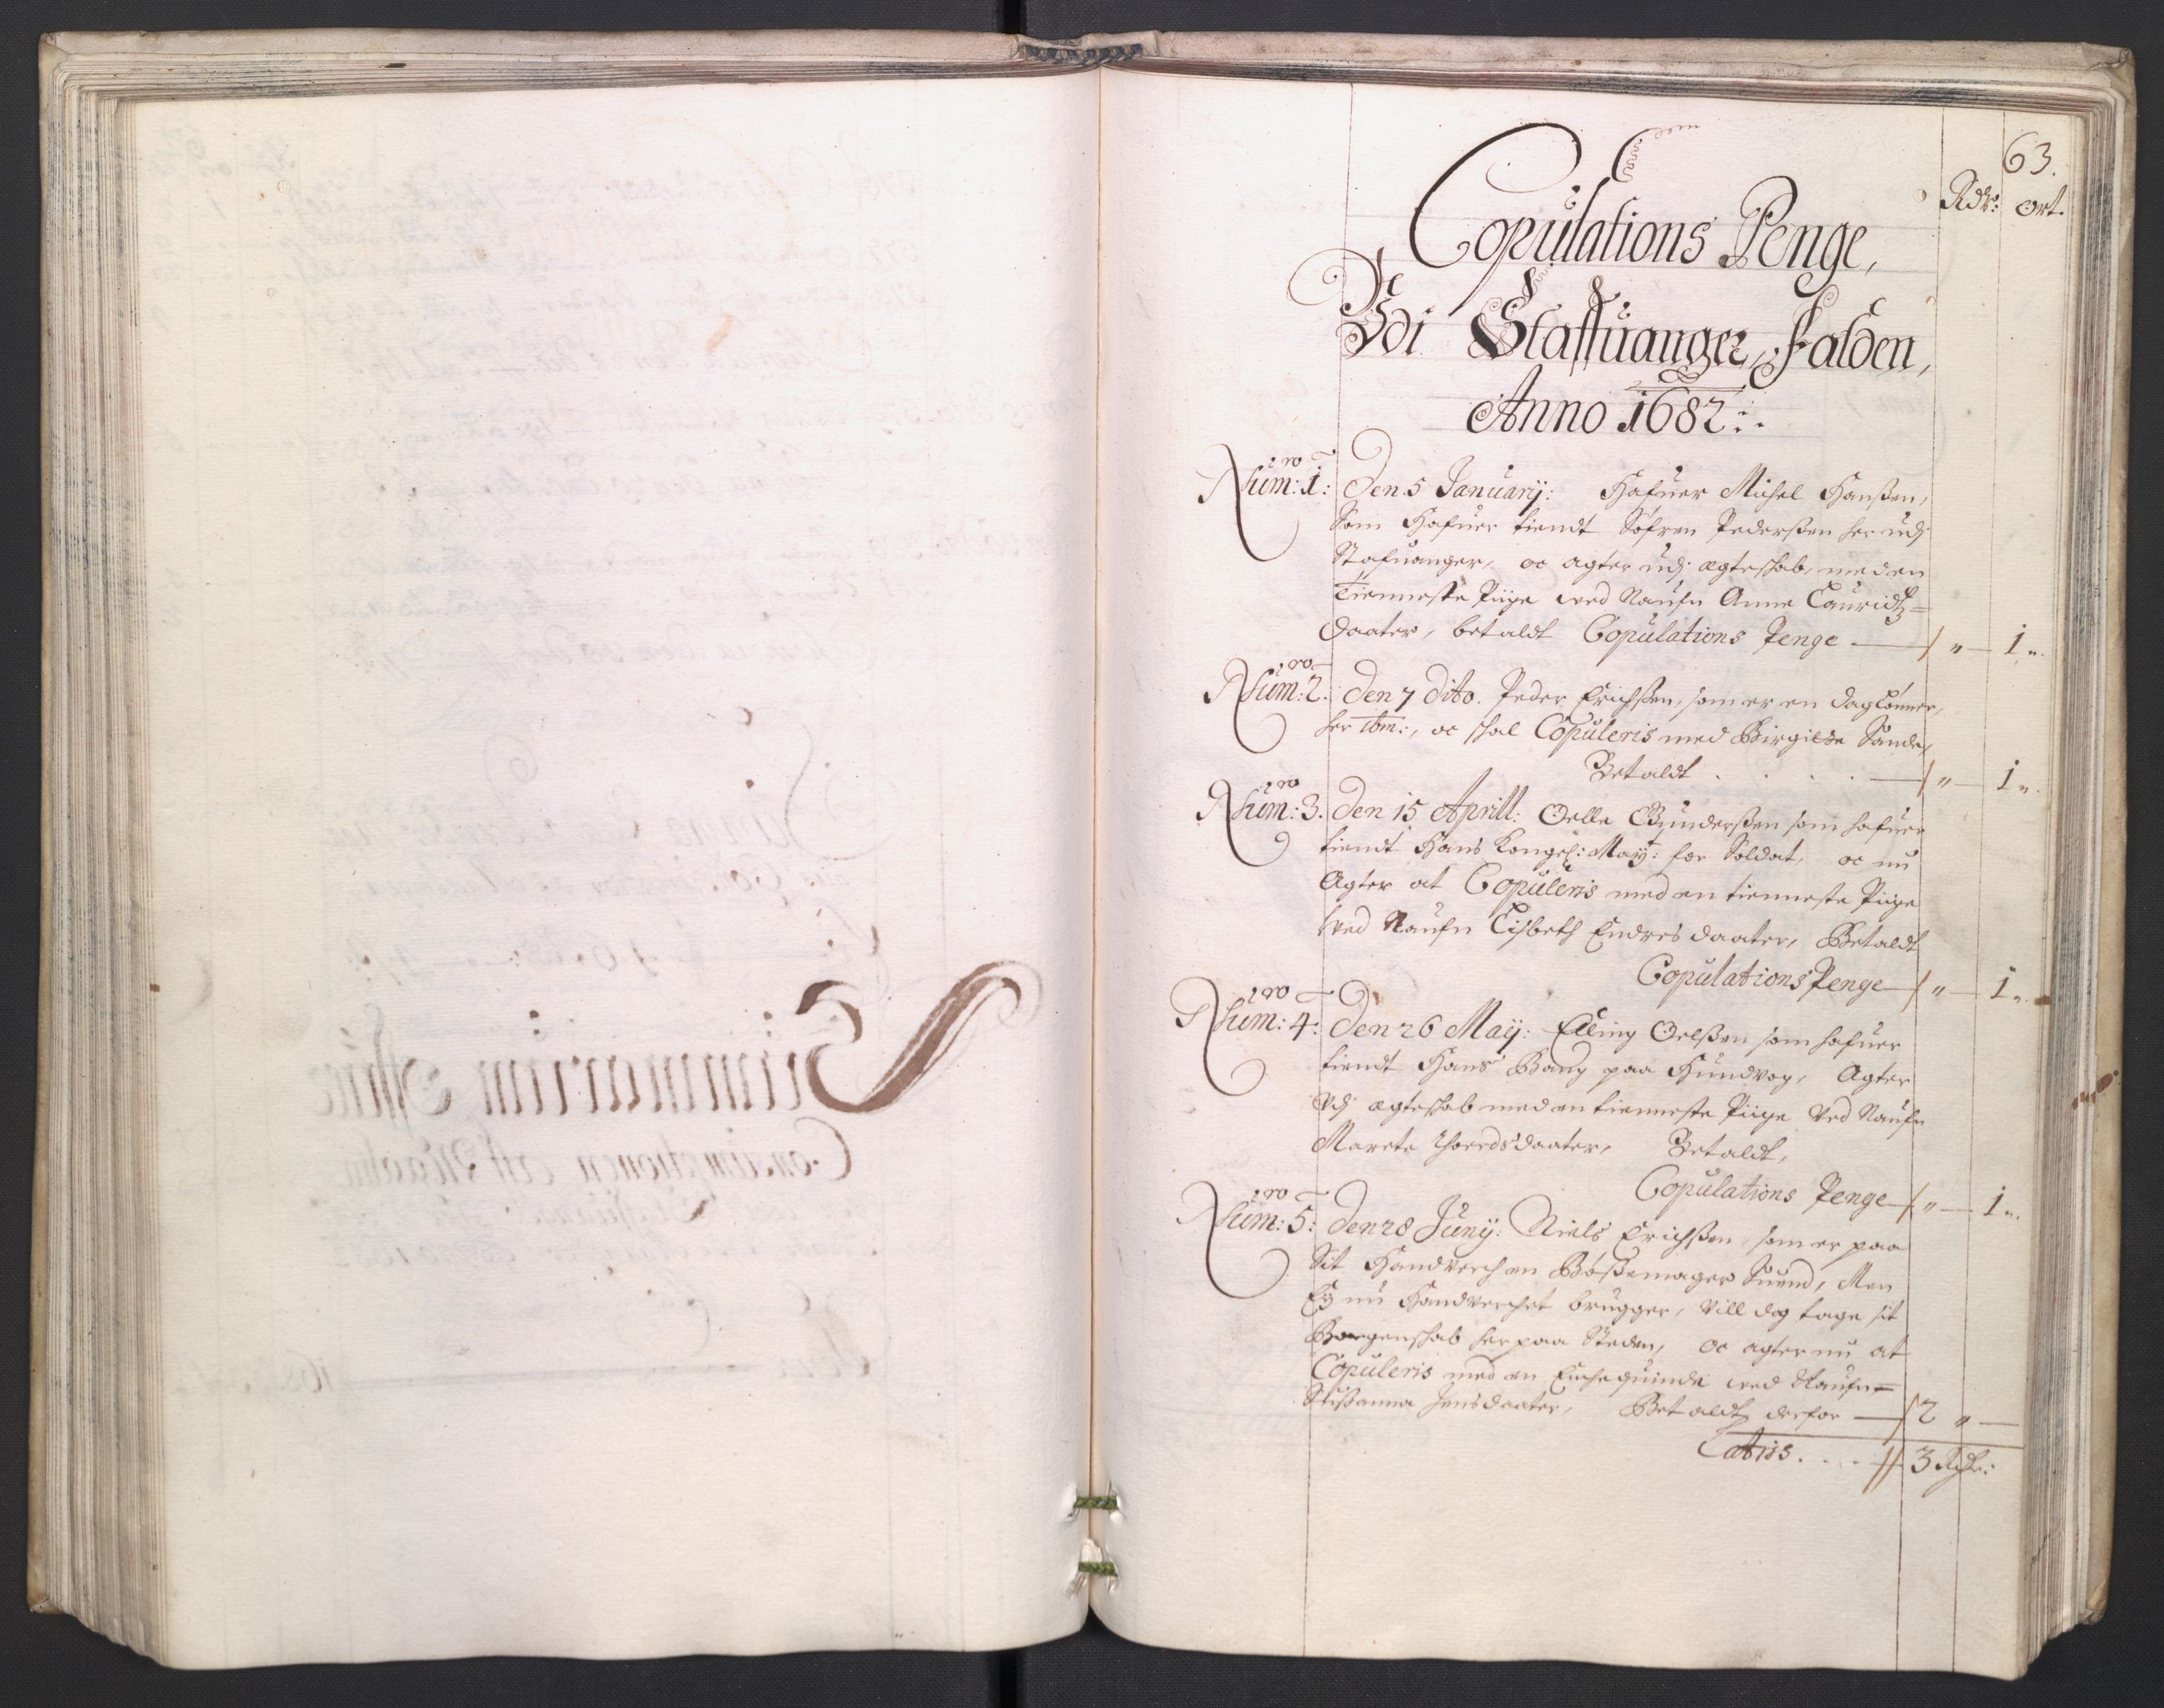 63.
Rdr: ort.
Copulations Penge,
Udi Staffuanger, falden,
Anno 1682:
Num:ro 1: Den 5 Januarij: Hafuer Michel Hanßen,
Som Hafuer tiendt Söfren Pederßen her udj
Stafuanger, oc agter udj ægteskab, med en
Tienneste Piige ved Naufn Anne Lauridtz=
Daater, betaldt Copulations Penge — " — 1 "
Num:ro 2. Den 7 dito. Peder Erichßen, som er en daglönner,
her ibm:, oc skal Copuleris med Birgitte Sande,
Betaldt . . . . — " — 1 "
Num:ro 3. Den 15 Aprill: Oelle Gunderßen som hafuer
tiendt Hans Kongel: Maytt: for Soldat, oc nu
Agter at Copuleris med en tienneste Piige
ved Naufn Lisbeth Endres daater, Betaldt
Copulations Penge — " — 1 "
Num:ro 4: Den 26 Maij: Elling Oelßen som hafuer
tiendt Hans Bang paa Hundvog, Agter
Udj ægteskab med en tienneste Piige Ved Naufn
Marete Thordsdaater, Betaldt,
Copulations Penge — " — 1 "
Num:ro 5: Den 28 Junij: Niels Erichßen, som er paa
Sit Handverch en Bößemager Suend, Men
Ey nu Handverchet brugger, Vill dog tage sit
Borgerskab her paa Steden, oc agter nu at
Copuleris med en Enchequinde ved Naufn=
Sußanna Jensdaater, Betaldt derfor — 2 " —
Latris. . . . 3 Rdr: